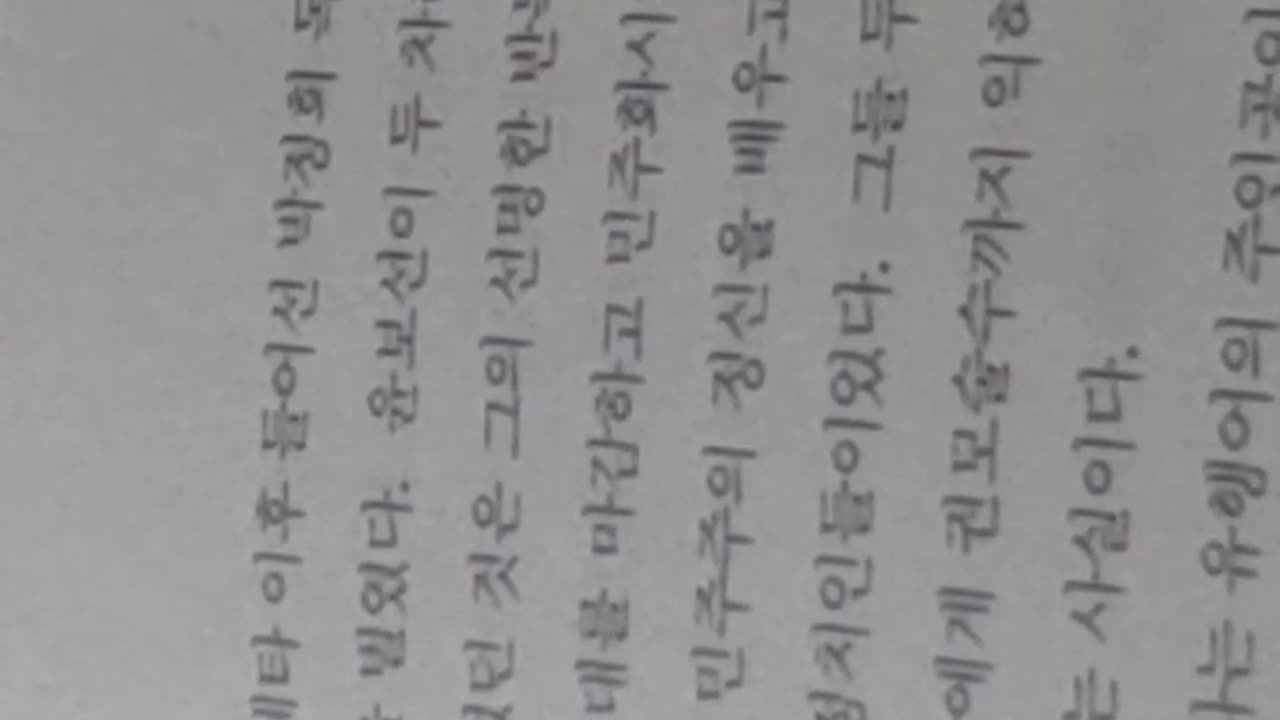 이후 들어선 박정희
빌었다. 윤보선이 두
것은 그의 선명한
대를 마감하고 민주화시
민주주의 정신을 배우고
정치인들이었다. 그들
에게 권모술수까지
는 사실이다.
는 유행어의